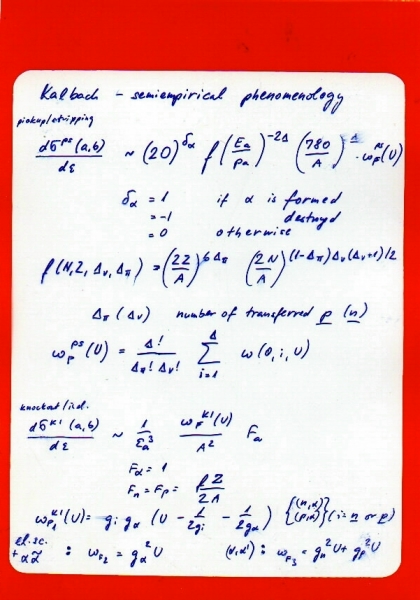 Kalbach – semiempirical phenomenology
pickup/stripping
dσ^ps (a,b) / dε ~ (20)^δα f (Ea / pa)^-2Δ (780 / A)^Δ · ω_F^ps (U)
δα = 1 if α is formed
= -1 destroyed
= 0 otherwise
f(N,Z, Δν, Δπ) = (2Z / A)^6Δπ (2N / A)^(1-Δπ)Δν(Δν+1)/2
Δπ (Δν) number of transferred p (n)
ω_p^ps (U) = Δ! / Δπ! Δν! Σ_{i=1}^Δ ω(0, i, U)
knockout/id.
dσ^KI (a,b) / dε ~ 1 / εa^3 ω_F^KI (U) / A^2 Fa
Fα = 1
Fn = Fp = fZ / 2A
ω_P1^KI (U) = gi gα (U - 1 / 2gi - 1 / 2gα) {(n,α) (p,α)} (i = n or p)
el. sc.
: ω_P2 = gα^2 U (α,α') : ω_P3 = gn^2 U + gp^2 U